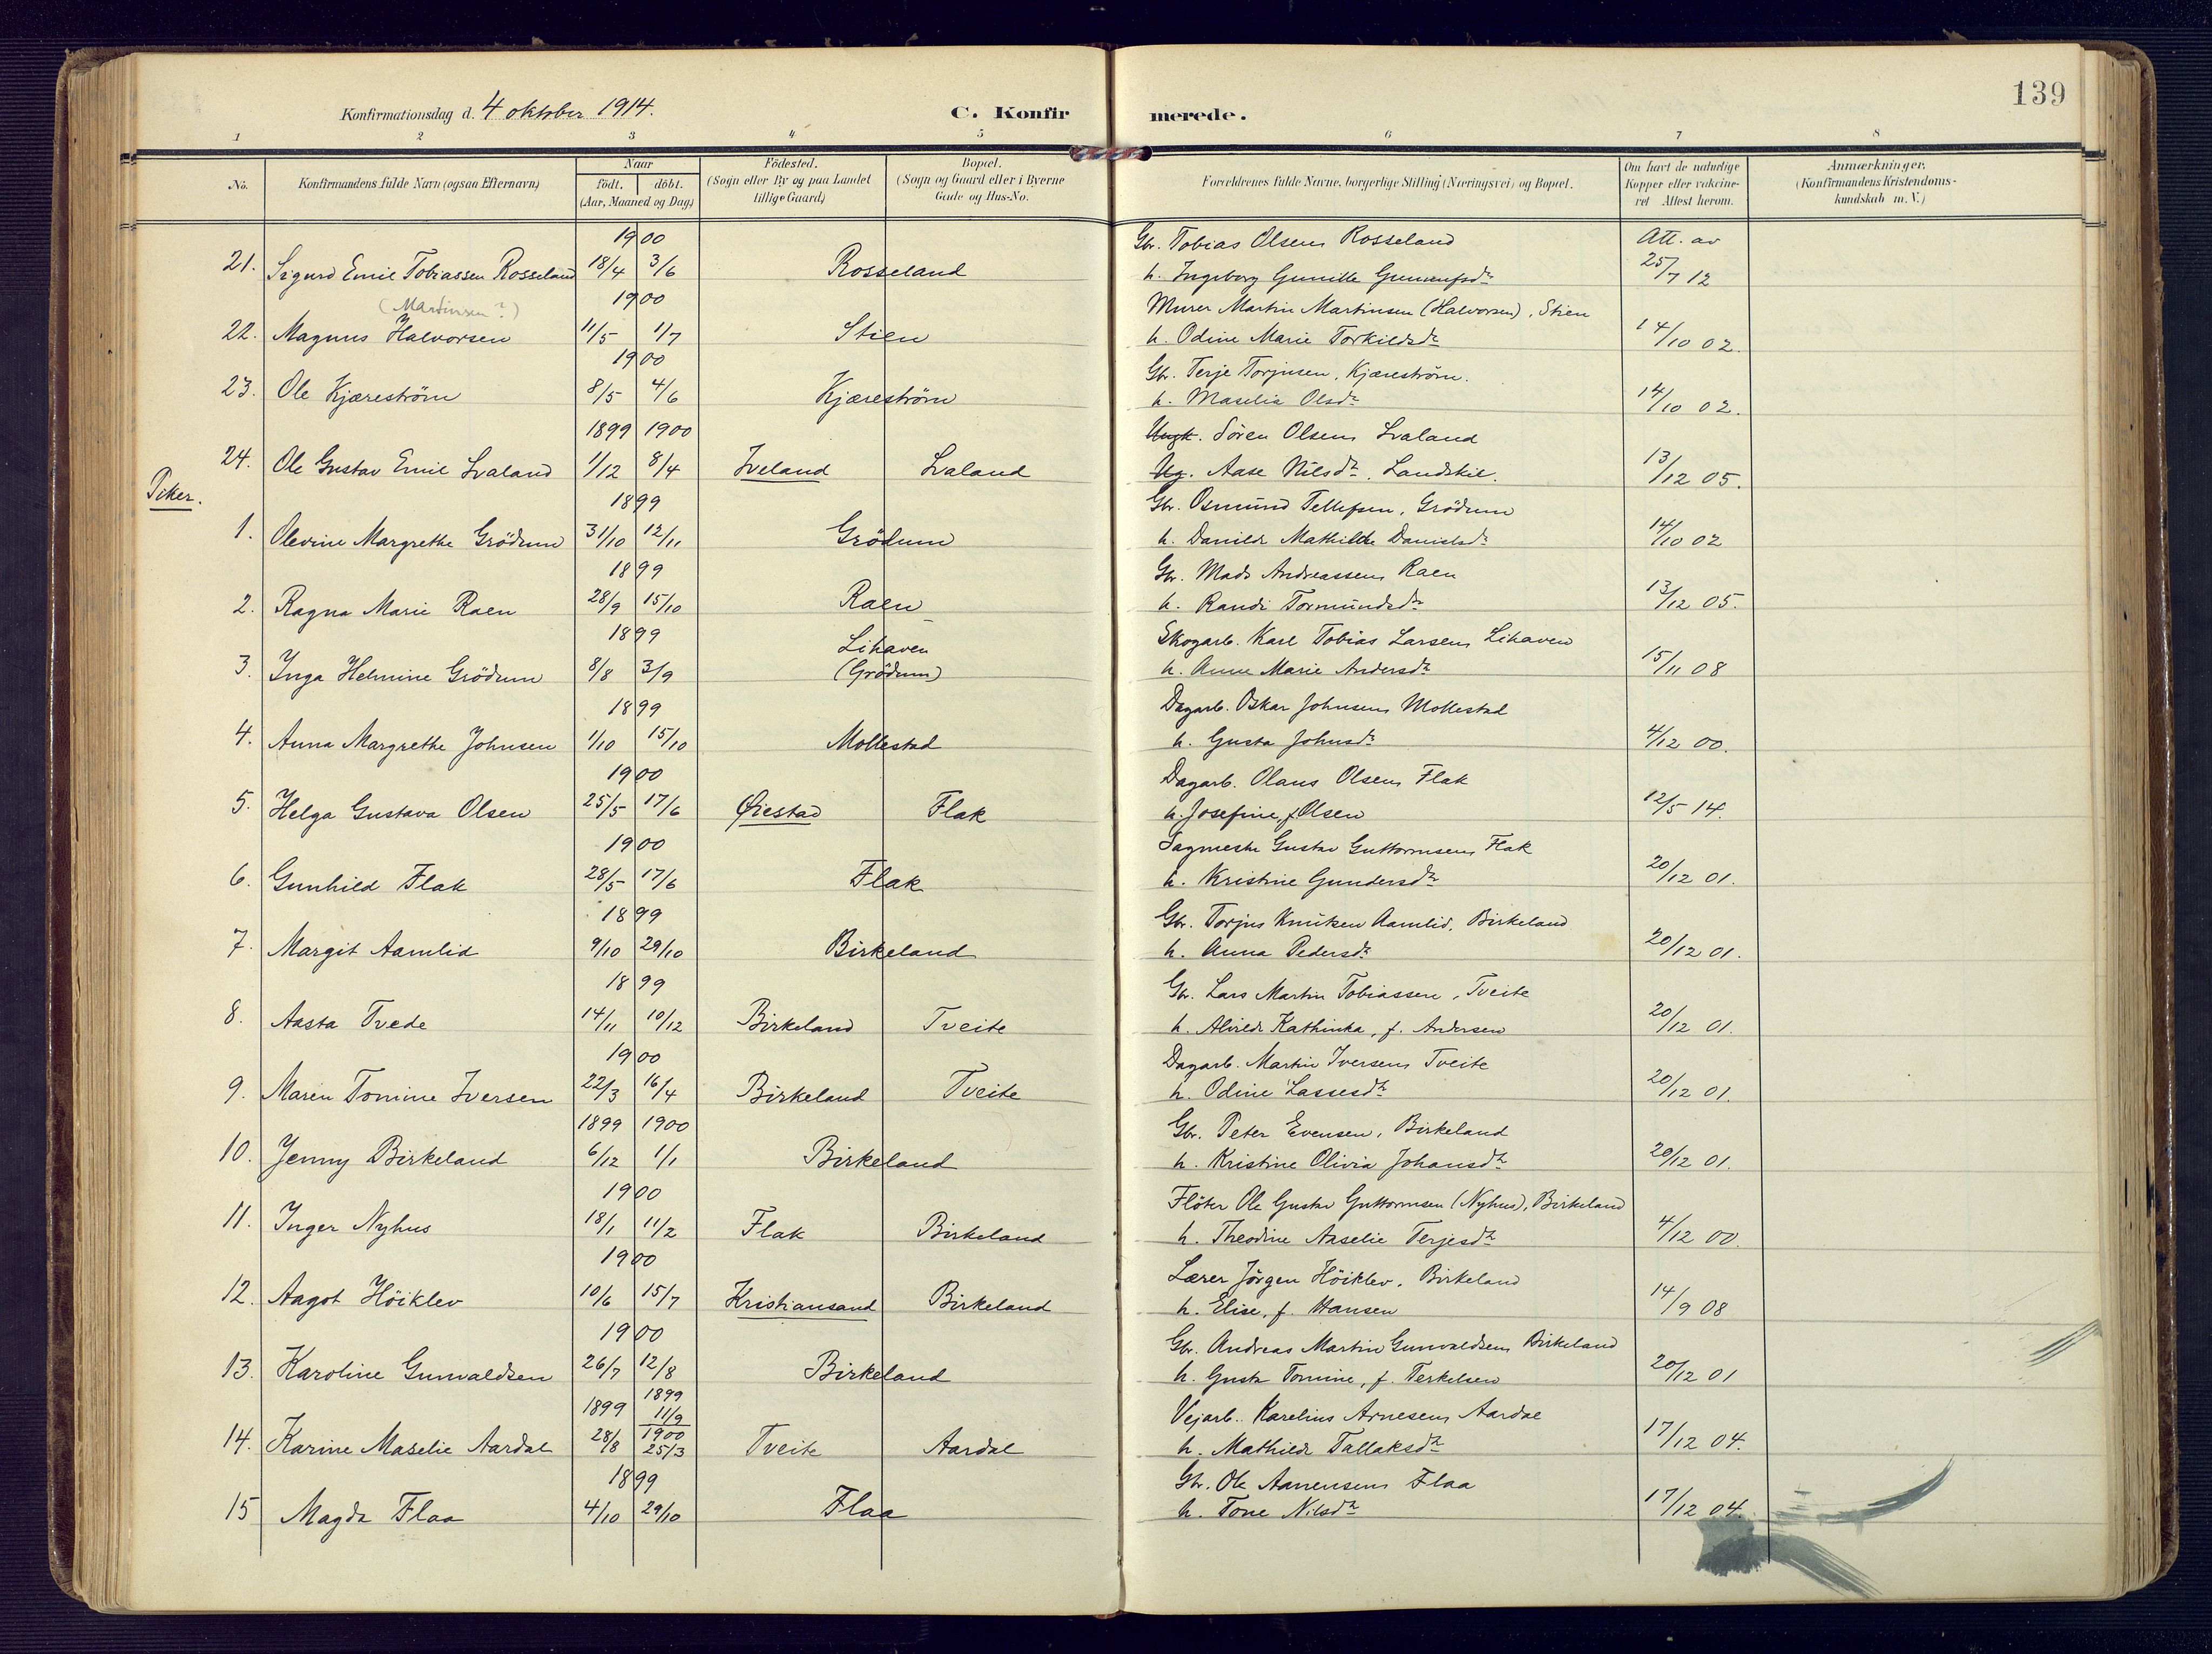 139
Konfirmationsdag d. 4 oktober 1914.
C. Konfirmerede.
1 2 3 4 5 6 7 8
No.
Konfirmandens fulde Navn (ogsaa Efternavn)
Naar
födt. döbt.
(Aar, Maaned og Dag)
Födested.
(Sogn eller By og paa Landet
tillige Gaard)
Bopæl.
(Sogn og Gaard eller i Byerne
Gade og Hus-No.
Forældrenes fulde Navne, borgerlige Stilling (Næringsvei) og Bopæl.
Om havt de naturlige
Kopper eller vakcine-
ret Attest herom.
Anmærkninger.
(Konfirmandens Kristendoms-
kundskab m. V.)
1900 Gbr. Tobias Olsen Rosseland Att. av
21. Sigurd Emil Tobiassen Rosseland 18/4 3/6 Rosseland h. Ingeborg Gunille Gunnufsdr 25/7 12
(Martinsen?) 1900 Murer Martin Martinsen (Halvorsen), Stien
22. Magnus Halvorsen 11/5 1/7 Stien h. Odine Marie Torkildsdr 14/10 02.
1900 Gbr. Terje Torjusen, Kjæreström.
23. Ole Kjæreström 8/5 4/6 Kjæreström h. Maselia Olsdr 14/10 02.
1899 1900 Ungk. Sören Olsen Lvaland
24. Ole Gustav Emil Lvaland 1/12 8/4 Iveland Lvaland Ug. Aase Nilsdr. Landskil. 13/12 05.
Piker.
1899 Gbr. Osmund Tellefsen, Grödum
1. Olevine Margrethe Grödum 31/10 12/11 Grödum h. Danilde Mathilde Danielsdr 14/10 02
1899 Gbr. Mads Andreassen Raen
2. Ragna Marie Raen 28/9 15/10 Raen h. Randi Tormundsdr 13/12 05.
1899 Lihaven Skogarb. Karl Tobias Larsen Lihaven
3. Inga Helmine Grödum 8/8 3/9 (Grödum) h. Anne Marie Andersdr 15/11 08
1899 Dagarb. Oskar Johnsen Mollestad
4. Anna Margrethe Johnsen 1/10 15/10 Mollestad h. Gusta Johnsdr 4/12 00.
1900 Dagarb. Olaus Olsen Flak
5. Helga Gustava Olsen 25/5 17/6 Øiestad Flak h. Josefine, f. Olsen 12/5 14.
1900 Sagmester Gustav Guttormsen Flak
6. Gunhild Flak 28/5 17/6 Flak h. Kristine Gundersdr 20/12 01.
1899 Gbr. Torjus Knutsen Aamlid, Birkeland
7. Margit Aamlid 9/10 29/10 Birkeland h. Anna Pedersdr 20/12 01.
1899 Gbr. Lars Martin Tobiassen, Tveite
8. Aasta Tvede 14/11 10/12 Birkeland Tveite h. Alvilde Kathinka, f. Andersen 20/12 01.
1900 Dagarb. Martin Iversen Tveite
9. Maren Tomine Iversen 22/3 16/4 Birkeland Tveite h. Odine Lassesdr 20/12 01.
1899 1900 Gbr. Peter Evensen, Birkeland
10. Jenny Birkeland 6/12 1/1 Birkeland h. Kristine Olivia Johansdr 20/12 01.
1900 Flöter Ole Gustav Guttormsen (Nyhus), Birkeland
11. Inger Nyhus 18/1 11/2 Flak Birkeland h. Theodine Aaselie Terjesdr 4/12 00.
1900 Lærer Jörgen Höiklev. Birkeland
12. Aagot Höiklev 10/6 15/7 Kristiansand Birkeland h. Elise, f. Hansen 14/9 08
1900 Gbr. Andreas Martin Gunvaldsen Birkeland
13. Karoline Gunvaldsen 26/7 12/8 Birkeland h. Gusta Tomine, f. Terkelsen 20/12 01
1899 1899 11/9 Vejarb. Karelius Arnesen Aardal
14. Karine Maselie Aardal 28/8 1900 25/3 Tveite Aardal h. Mathilde Tallaksdr 17/12 04.
1899 Gbr. Ole Aanensen Flaa
15 Magda Flaa 4/10 29/10 Flaa h. Tone Nilsdr 17/12 04.